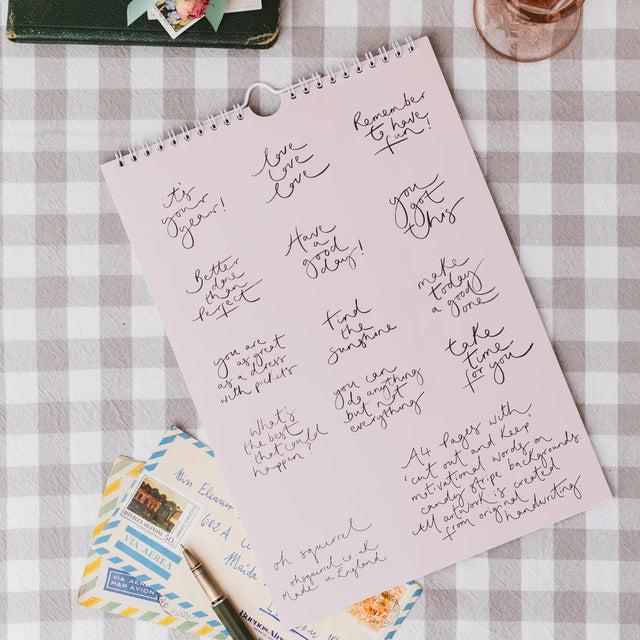 it's
your
year!
love
love
love
Remember
to have
fun!
Better
done
than
perfect
Have
a
good
day!
you
got
this
you are
as great
as a dress
with pockets
find
the
sunshine
make
today
a good
one
What's
the best
that could
happen?
you can
do anything
but not
everything
take
time
for you
A4 Pages with
'cut out and keep'
motivational words on
candy stripe backgrounds.
All artwork is created
from original
handwriting
oh squirrel
ohsquirrel.co.uk
Made in England
Miss Eleanor
602A
REPUBLICA ARGENTINA
30
VIA AEREA
VIA AEREA
PAR AVION
Buenos Aires